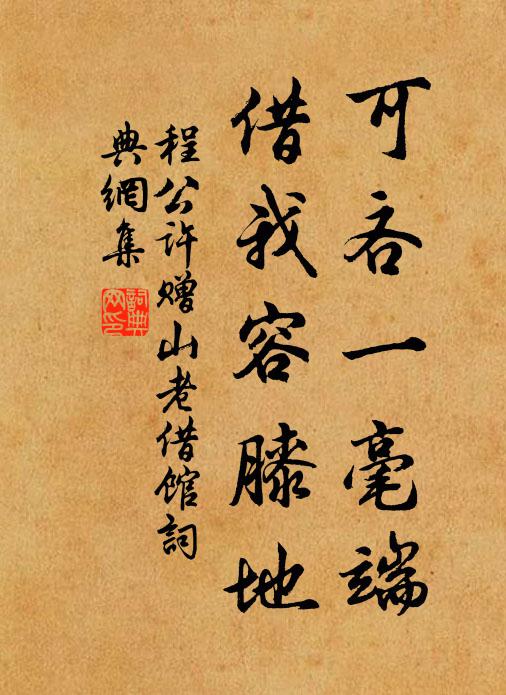 可吝一毫端
借我容膝地
程公许赠山老借馆词
典網集
詞典
网印